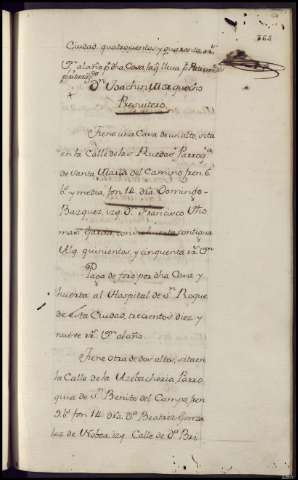 363
Ciudad, quatrocientos y quarenta rs.
vn. al año pr. dha. Casa la qe. lleva
Dn. Joachin Marquecho
Presvitero.
Tiene una Casa de un alto, sita
en la Calle de las Ruedas Parroqa.
de Santa Maria del Camino fren. 6
bs. y media, fon. 14. dra. Domingo
Bazquez, izq. D. Francisco Tho
mas Garcia
Utg. quinientos, y cinquenta rs. vn.
Paga de foro por dha. Casa y
huerta al Hospital de Sn. Roque
de esta Ciudad, trecientos diez y
nueve rs. vn. al año.
Tiene otra de dos altos, sita en
la Calle de la Azebacheria Parro
quia de Sn. Benito del Campo, fren
5. bs. fon. 14. dra. Da. Beatriz Gonza
lez de Noboa, izq. Calle de Dn. Ber